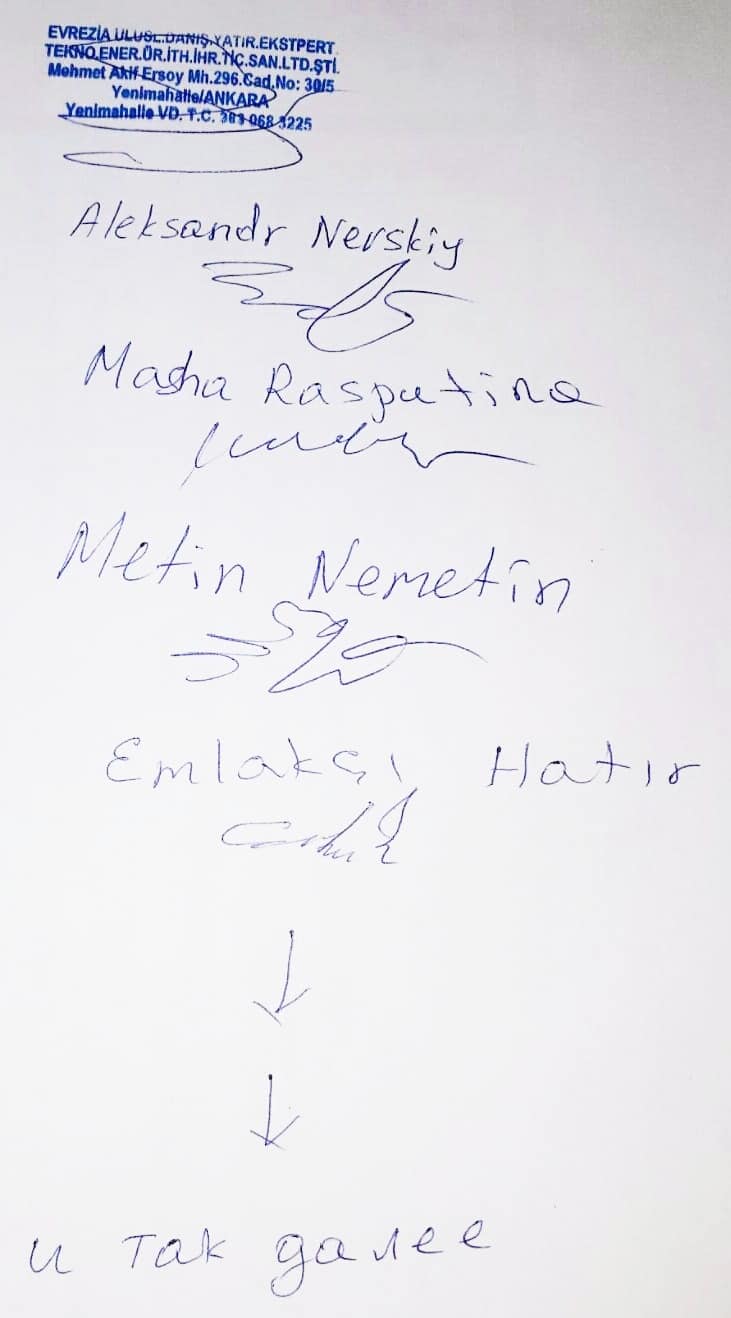 EVREZİA ULUSL.DANIŞ.YATIR.EKSTPERT
TEKNO.ENER.ÜR.İTH.İHR.TİC.SAN.LTD.ŞTİ.
Mehmet Akif Ersoy Mh.296.Cad.No: 30/5
Yenimahalle/ANKARA
Yenimahalle VD. T.C. 068 3225
Aleksandr Nevskiy
Masha Rasputina
Metin Nemetin
Emlakçı Hatır
и так далее